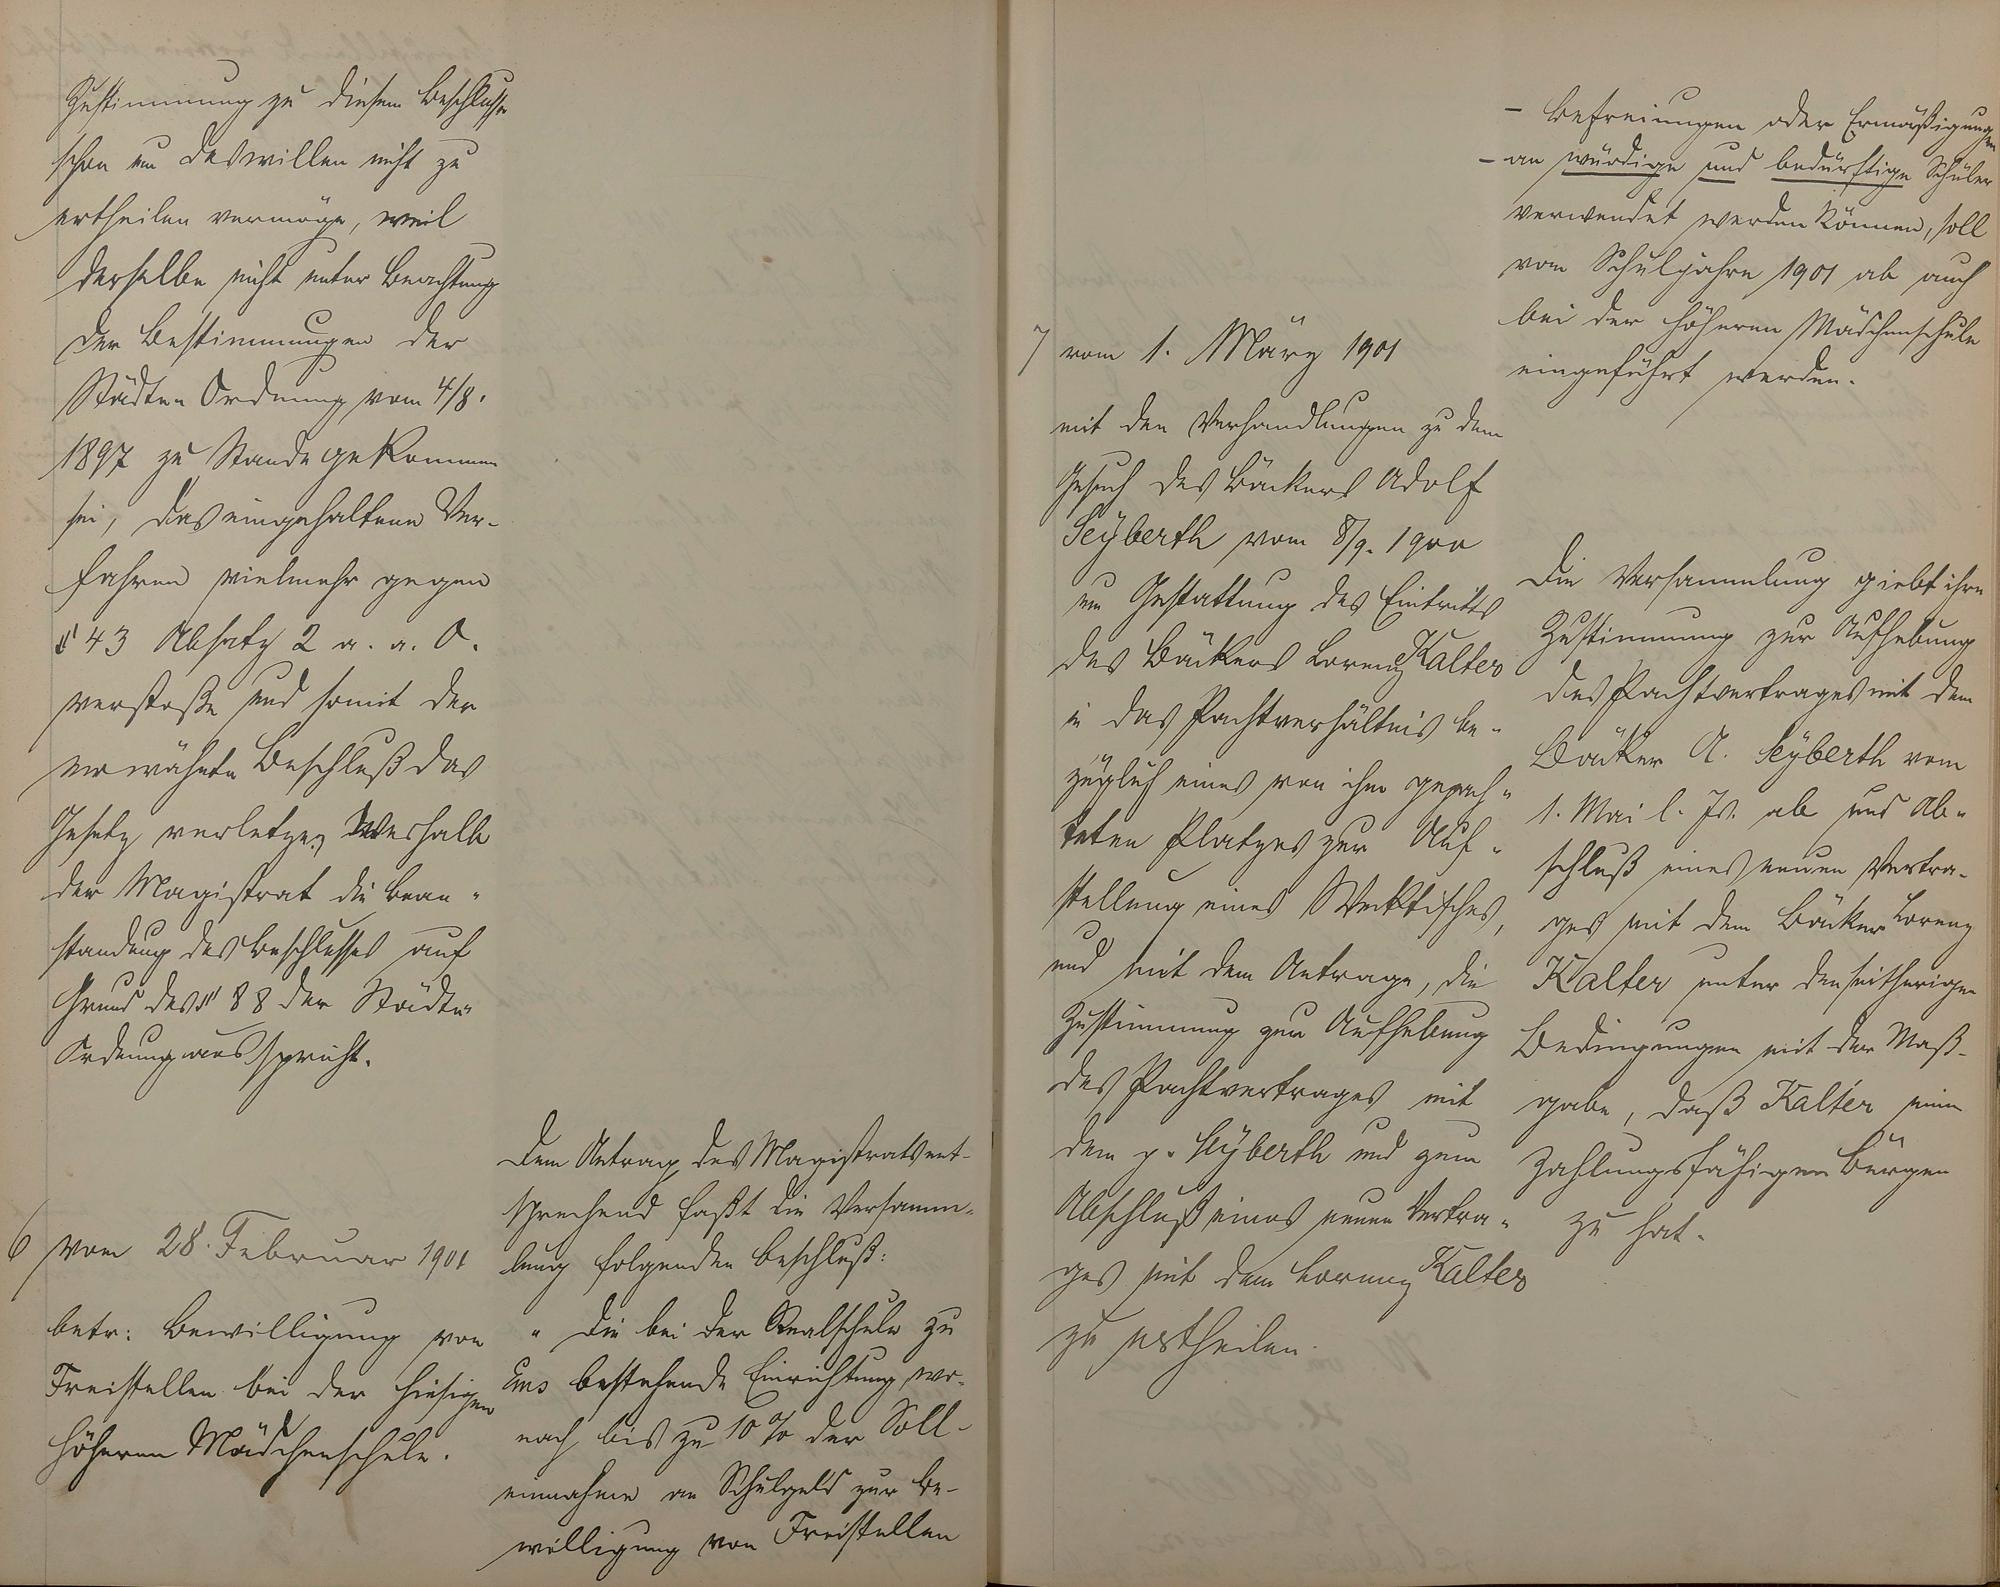 Zustimmung zu diesem Beschlusse
schon um deswillen nicht zu
ertheilen vermöge, weil
derselbe nicht unter Beachtung
der Bestimmungen der
Städte-Ordnung vom 4/8.
1897 zu Stande gekommen
sei, das eingehaltene Ver-
fahren vielmehr gegen
§ 43 Absatz 2 a. a. O.
verstoße und somit der
erwähnte Beschluß das
Gesetz verletze, weshalb
der Magistrat die Bean-
standung des Beschlusses auf
Grund des § 88 der Städte-
Ordnung ausspricht.
6 vom 28. Februar 1901
betr: Bewilligung von
Freistellen bei der hiesigen
höheren Mädchenschule.
Dem Antrag des Magistrats ent-
sprechend faßt die Versamm-
lung folgenden Beschluß:
" Die bei der Realschule zu
Ems bestehende Einrichtung, wo-
nach bis zu 10 % der Soll-
einnahme an Schulgeld zur Be-
willigung von Freistellen
- Befreiungen oder Ermäßigungen
- an würdige und bedürftige Schüler
verwendet werden können, soll
vom Schuljahre 1901 ab auch
bei der höheren Mädchenschule
eingeführt werden.
7 vom 1. März 1901
mit den Verhandlungen zu dem
Gesuch des Bäckers Adolf
Seyberth vom 8/9. 1900
um Gestattung des Eintritts
des Bäckers Lorenz Kalter
in das Pachtverhältnis be-
züglich eines von ihm gepach-
teten Platzes zur Auf-
stellung eines Wecktisches,
und mit dem Antrage, die
Zustimmung zur Aufhebung
des Pachtvertrages mit
dem p. Seyberth und zum
Abschluß eines neuen Vertra-
ges mit dem Lorenz Kalter
zu ertheilen.
Die Versammlung giebt ihre
Zustimmung zur Aufhebung
des Pachtvertrages mit dem
Bäcker A. Seyberth vom
1. Mai l. Js. ab und Ab-
schluß eines neuen Vertra-
ges mit dem Bäcker Lorenz
Kalter unter den seitherigen
Bedingungen mit der Maß-
gabe, daß Kalter einen
zahlungsfähigen Bürgen
zu hat.